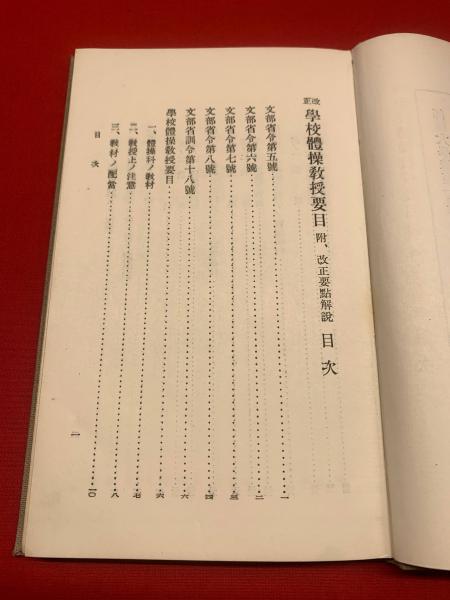 改正 學校體操敎授要目 附、改正要點解說 目次
文部省令第五號……一
文部省令第六號……二
文部省令第七號……三
文部省令第八號……四
文部省訓令第十八號……六
學校體操敎授要目……六
一、體操科ノ敎材……七
二、敎授上ノ注意……八
三、敎材ノ配當……一〇
目次